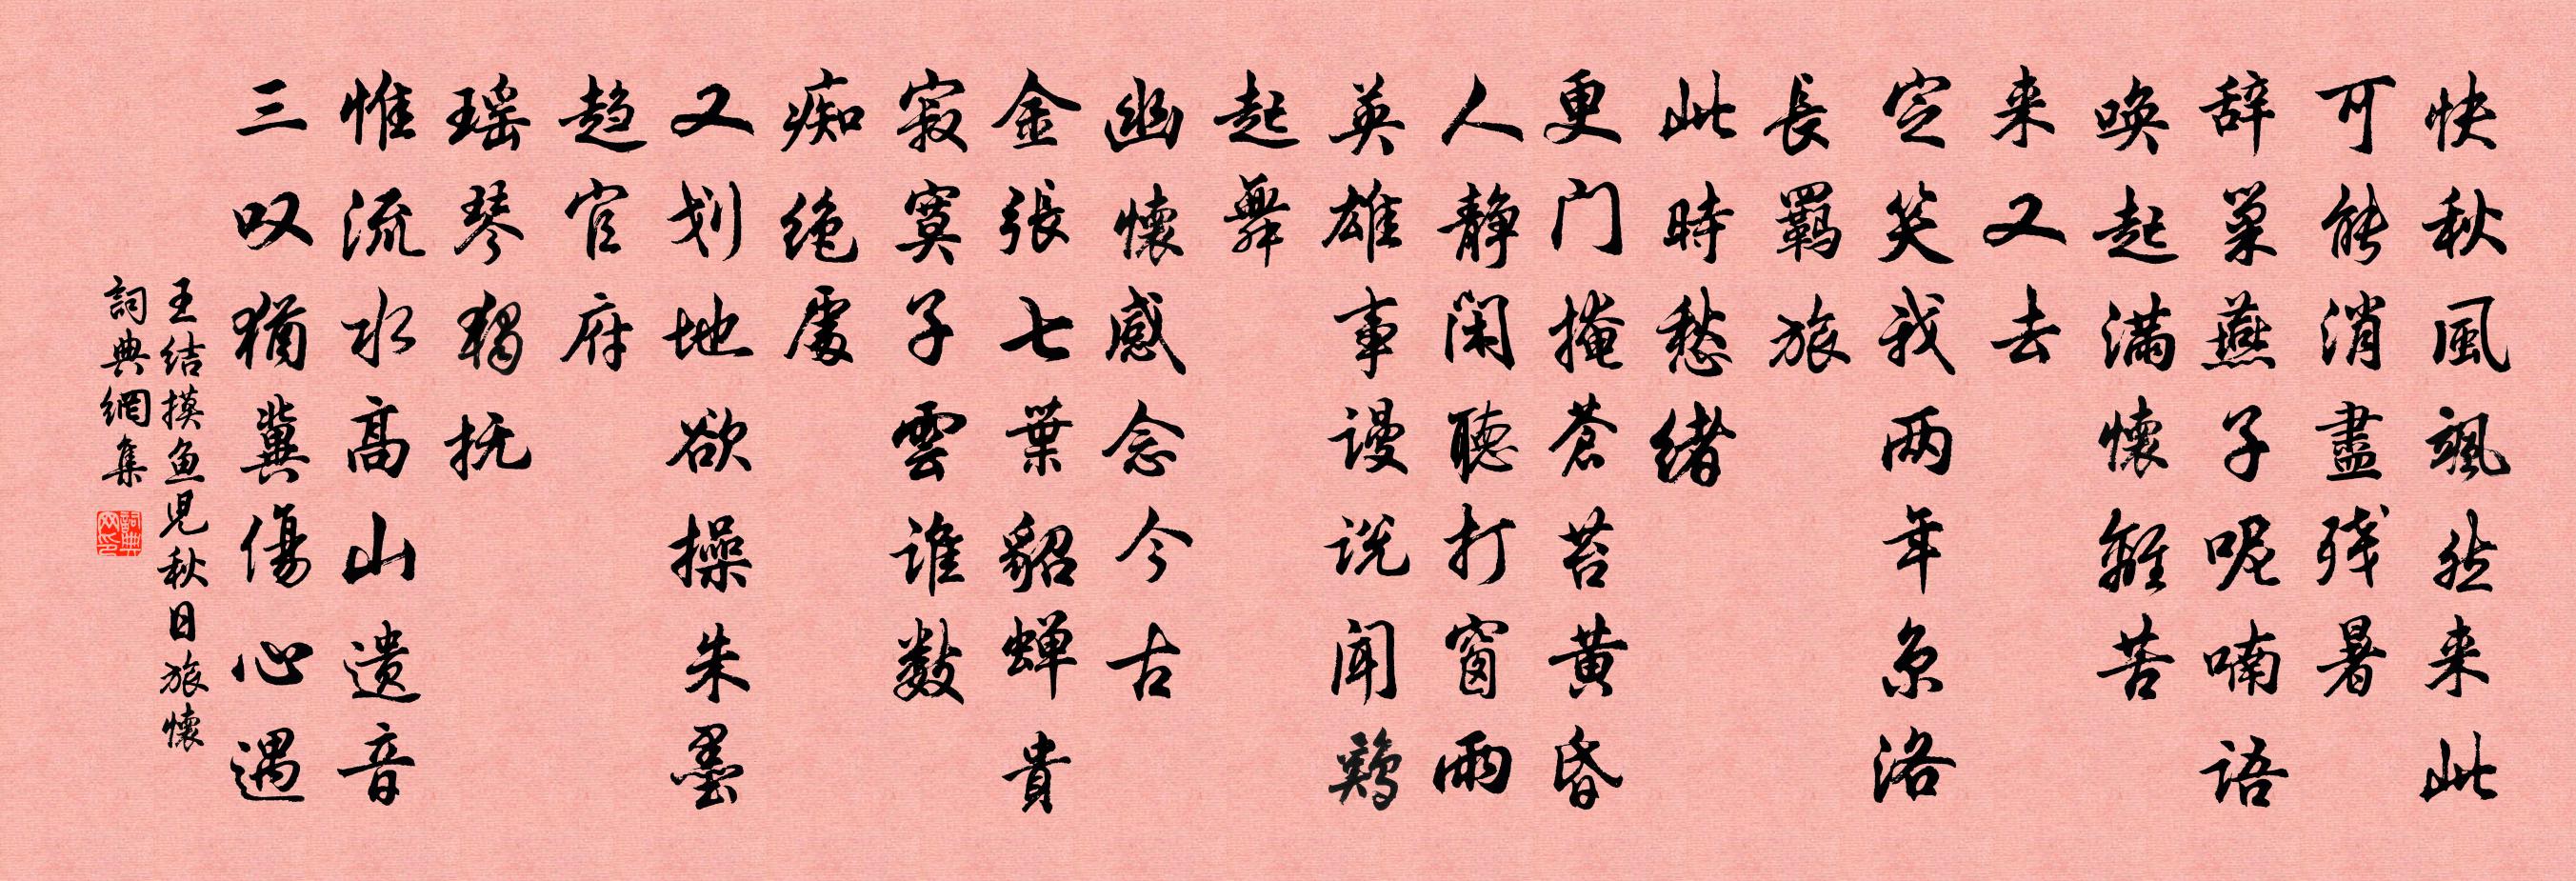 快秋風颯然来此
可能消盡残暑
辞巢燕子呢喃語
唤起满懷離苦
来又去
定笑我两年京洛
長羁旅
此時愁绪
更门掩蒼苔黄昏
人静闲聽打窗雨
英雄事谩说闻鷄
起舞
幽懷感念今古
金張七葉貂蝉貴
寂寞子雲谁数
痴绝處
又划地欲操朱墨
趋官府
瑶琴独抚
惟流水高山遗音
三叹猶冀傷心遇
王结摸鱼儿秋日旅懷
詞典網集
詞典网印